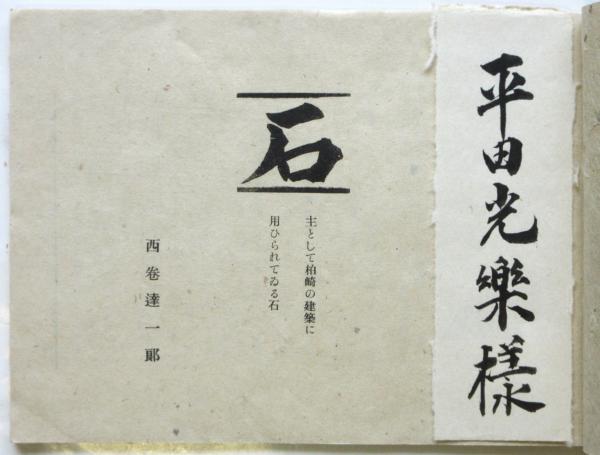 平田光樂様
石
主として柏崎の建築に
用ひられてゐる石
西卷達一郞